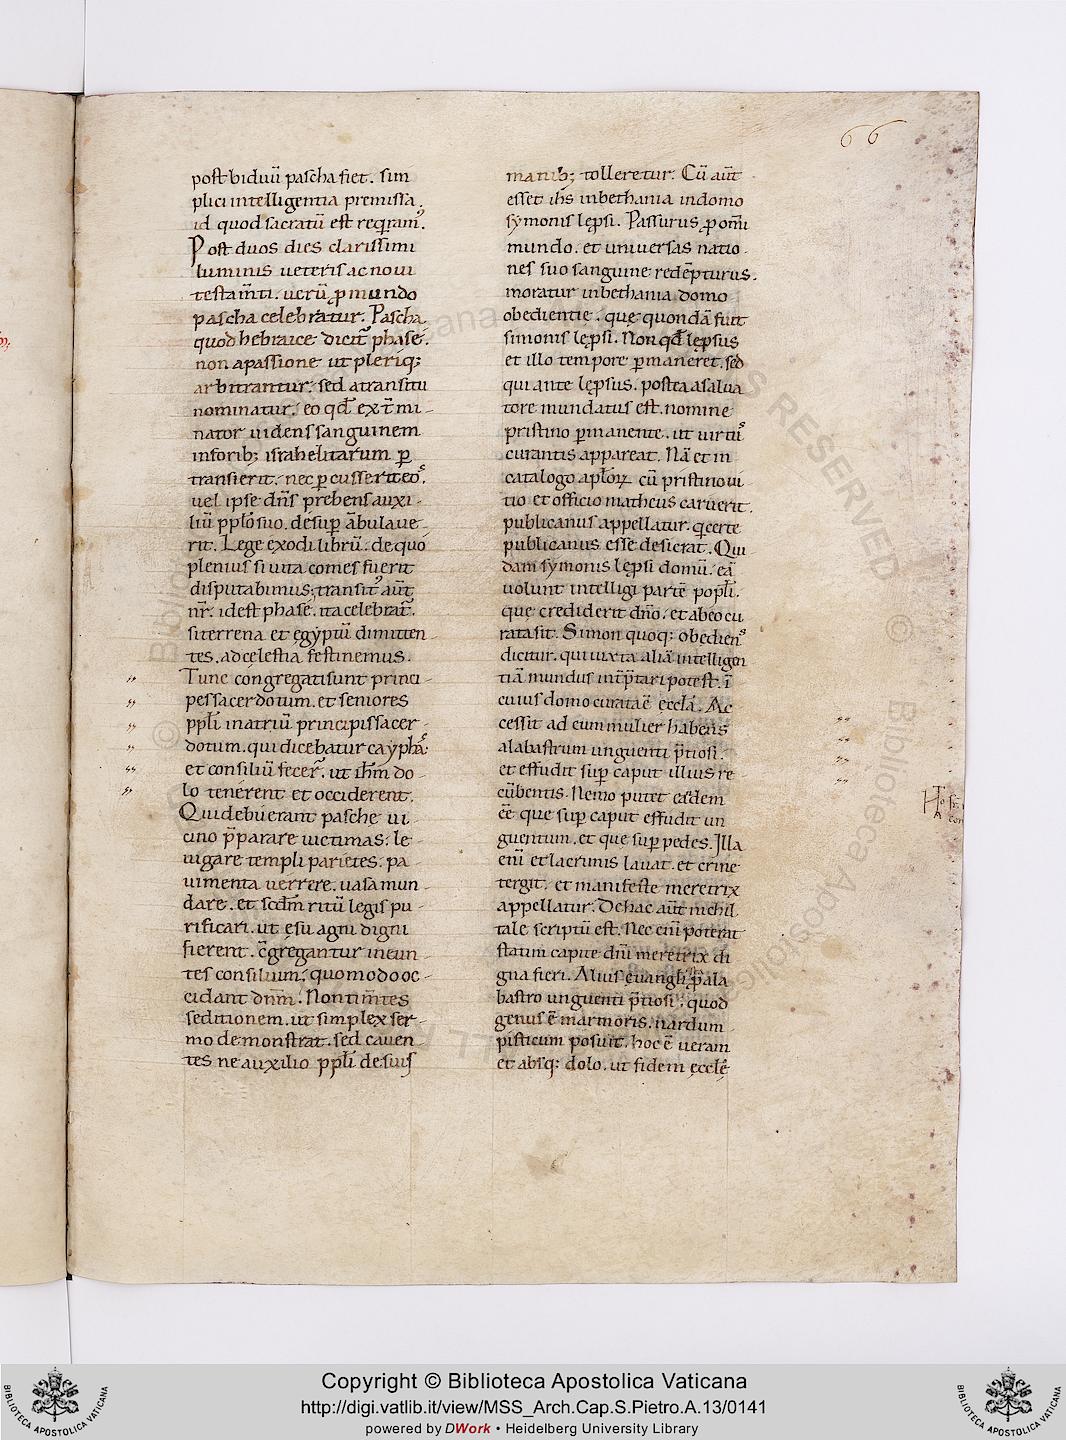 66
post biduū pascha fiet. sim
plici intelligentia premissa.
id quod sacratū est reqiram᾽.
Post duos dies clarissimi
luminis ueteris ac noui
testam̄ti. uerū ꝑ mundo
pascha celebratur. Pascha
quod hebraice dicit᾽ phase.
non apassione ut pleriq;
arbitrantur. sed atransitu
nominatur. eo qđ ext̄mi-
nator uidens sanguinem
inforib; israhelitarum ꝑ
transierit. nec ꝑcusserit eo᾽.
uel ipse dn̄s prebens auxi-
liū ppl̄o suo. desuꝑ ābulaue-
rit. Lege exodi librū. de quo
plenius si uita comes fuerit
disputabimus; transit᾽ aūt
nr̄. idest phase. ita celebrat᾽.
si terrena et egyptū dimitten-
tes. ad celestia festinemus.
Tunc congregati sunt princi-
pes sacerdotum. et seniores
ppl̄i in atriū principis sacer-
dotum. qui dicebatur cayphas.
et consiliū fecer̄. ut ih̄m do-
lo tenerent et occiderent.
Qui debuerant pasche ui-
cino p̄parare uictimas. le-
uigare templi parietes. pa-
uimenta uerrere. uasa mun-
dare. et scd̄m ritū legis pu-
rificari. ut esu agni digni
fierent. c̄gregantur ineun-
tes consilium. quomodo oc-
cidant dnm̄. Non tim̄tes
seditionem. ut simplex ser-
mo demonstrat. sed cauen
tes ne auxilio ppl̄i de suis
manib; tolleretur. Cū aūt
esset ih̄s in bethania in domo
symonis lępsi. Passurus ꝑ om̄i
mundo. et uniuersas natio-
nes suo sanguine redēpturus.
moratur in bethania domo
obedientie. que quondā fuit
simonis lępsi. Non qđ lępsus
et illo tempore ꝑmaneret. sed
qui ante lępsus. postea asalua
tore mundatus est. nomine
pristino ꝑmanente. ut uirtu᾽
curantis appareat. Nā et in
catalogo apl̄oꝝ cū pristino ui
tio et officio matheus caruerit.
publicanus appellatur. qi certe
publicanus esse desierat. Qui
dam symonis lępsi domū. eā
uolunt intelligi partē popl̄i.
que crediderit dn̄o. et ab eo cu
rata sit. Simon quoq; obedien᾽
dicitur. qui iuxta aliā intelligen
tiā mundus int̄p̄tari potest. ī
cuius domo curata ē ęccl̄a. Ac
cessit ad eum mulier habens
alabastrum unguenti p̄tiosi.
et effudit suꝑ caput illius re
cūbentis. Nemo putet eādem
ēē que suꝑ caput effudit un
guentum. et que suꝑ pedes. Illa
enī et lacrimis lauat. et crine
tergit. et manifeste meretrix
appellatur. De hac aūt nichil
tale scriptū est. Nec enī poterat
statim capite dn̄i meretrix di
gna fieri. Alius euangl̄. p̄ ala
bastro unguenti p̄tiosi. quod
genus ē marmoris. nardum
pisticum posuit. hoc ē ueram
et absq; dolo. ut fidem ęccl̄ę
Copyright © Biblioteca Apostolica Vaticana
http://digi.vatlib.it/view/MSS_Arch.Cap.S.Pietro.A.13/0141
powered by DWork • Heidelberg University Library